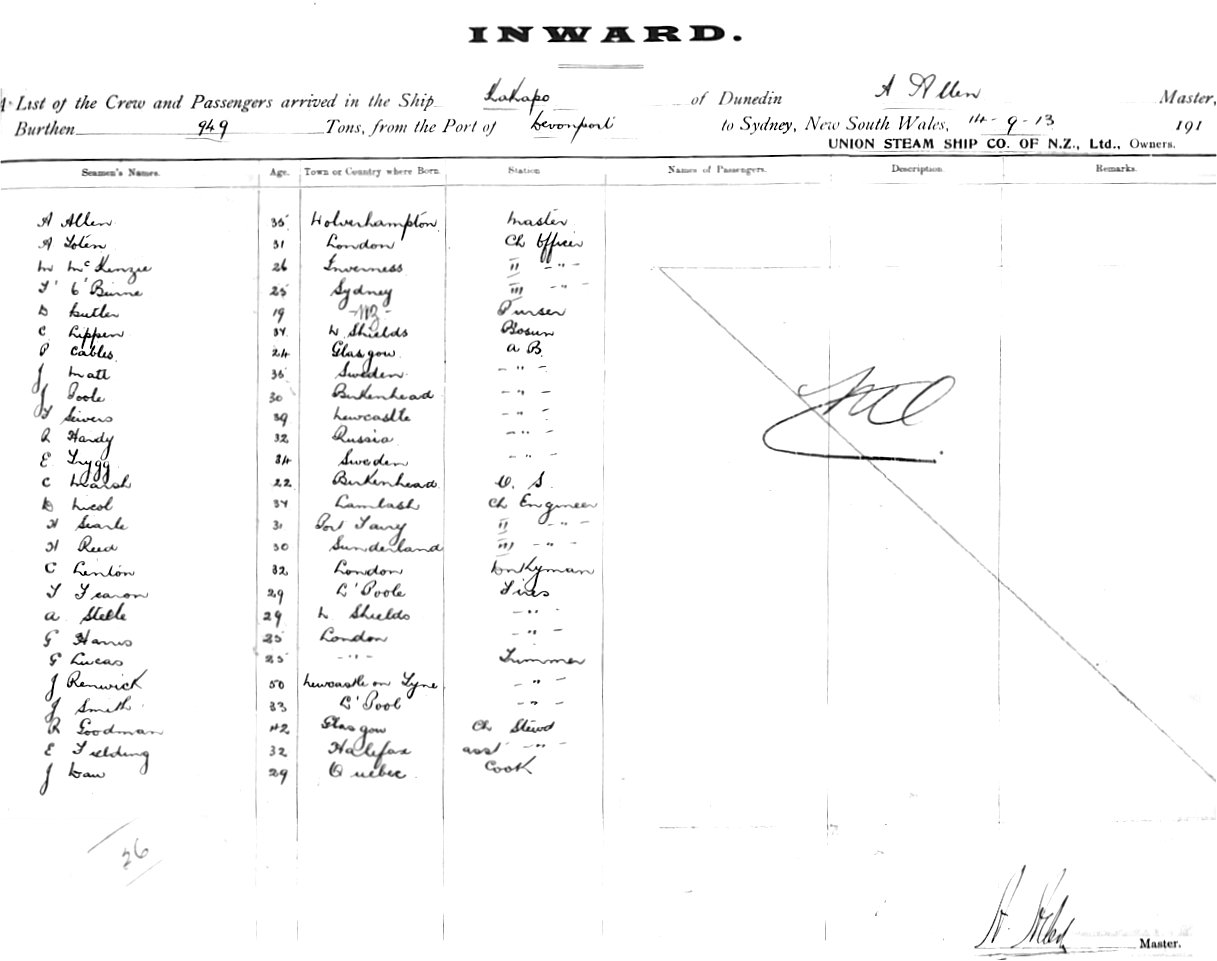 INWARD.
A List of the Crew and Passengers arrived in the Ship Kakapo of Dunedin A Allen Master,
Burthen 949 Tons, from the Port of Devonport to Sydney, New South Wales, 14-9-13 191
UNION STEAM SHIP CO. OF N.Z., Ltd., Owners.
Seamen's Names. Age. Town or Country where Born. Station Names of Passengers. Description Remarks.
A Allen 35 Wolverhampton Master
A 31 London Ch Officer
M McKenzie 26 Inverness II - " -
25 Sydney III - " -
D Butler 19 - NZ - Purser
C Lippen 34 N Shields Bosun
P Cables 24 Glasgow A B
J Matt 35 Sweden - " -
J Poole 30 Birkenhead - " -
39 Newcastle - " -
R Hardy 32 Russia - " -
E Trygg 34 Sweden - " -
C Marsh 22 Birkenhead O. S.
D Nicol 34 Lamlash Ch Engineer
H Searle 31 Port Fairy II - " -
H Reed 30 Sunderland III - " -
C Linton 32 London Donkyman
T Fearon 29 L'Poole Fires
A Steele 29 N Shields - " -
G Harris 25 London - " -
G Lucas 25 - " - Trimmer
J Renwick 50 Newcastle on Tyne - " -
J Smith 33 L'Pool - " -
R Goodman 42 Glasgow Ch Stewd
E Fielding 32 Halifax asst - " -
J 29 Quebec Cook
26
Master.